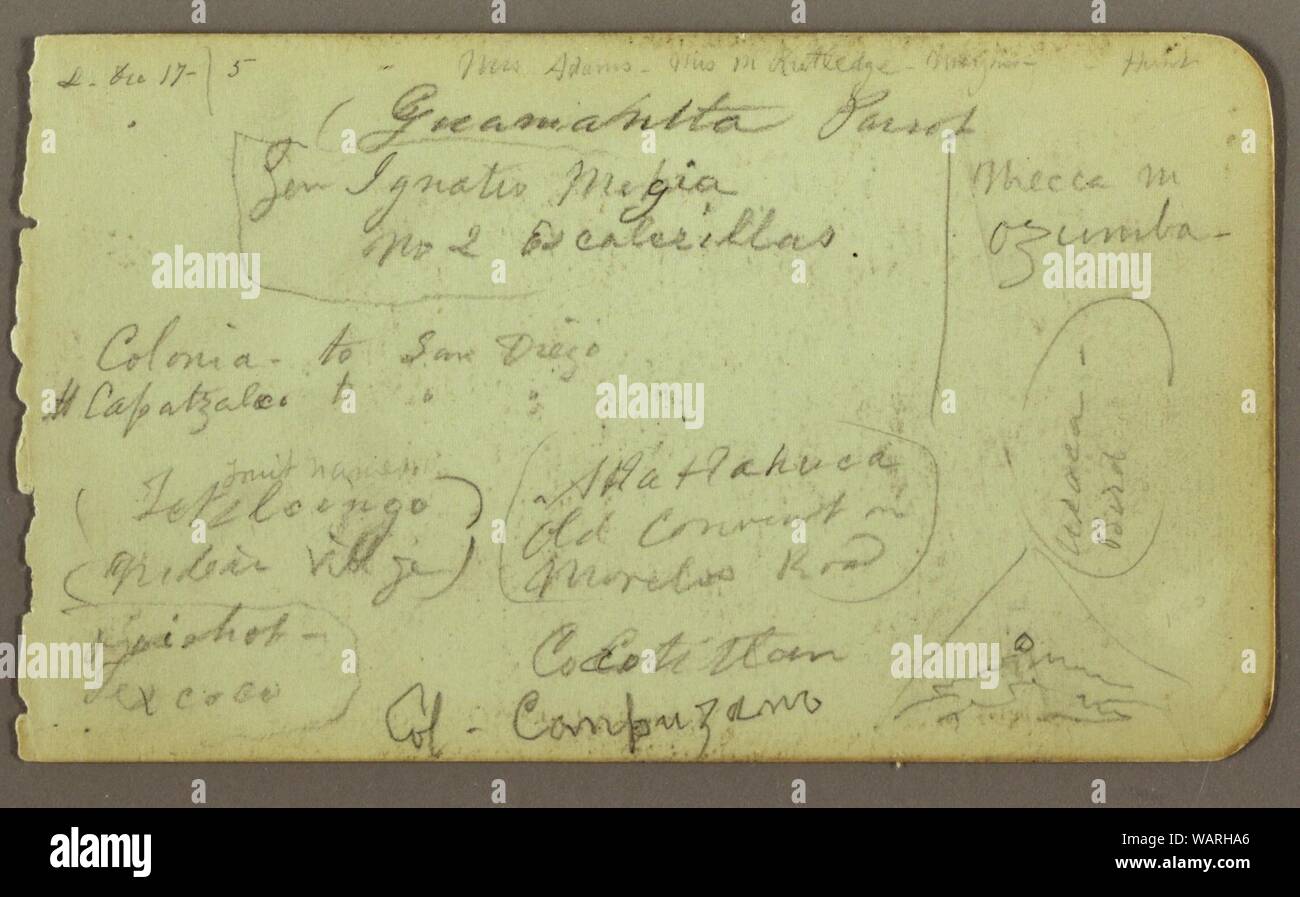 5 Mrs Adams - Mrs M Rutledge - - Hunt
Guamahtta Parrot
Gen Ignatio Mejia
No 2 Escalerillas
Mecca M
Ozumba -
Colonia - to San Diego
Capatzalco to " "
Fruit names
Village
Atlatlahuca
Old Convent in
Morelos Road
Bird
Texcoco
Cocotitlan
Col - Campuzano
alamy
Image ID: WARHA6
www.alamy.com